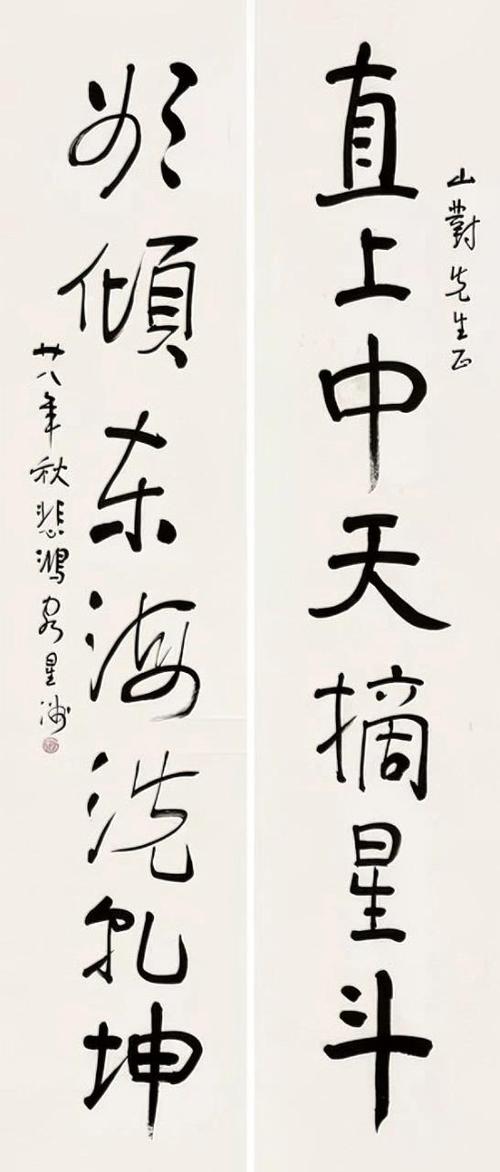 山對先生正
直上中天摘星斗
欲傾东海洗乾坤
廿八年秋悲鴻客星洲